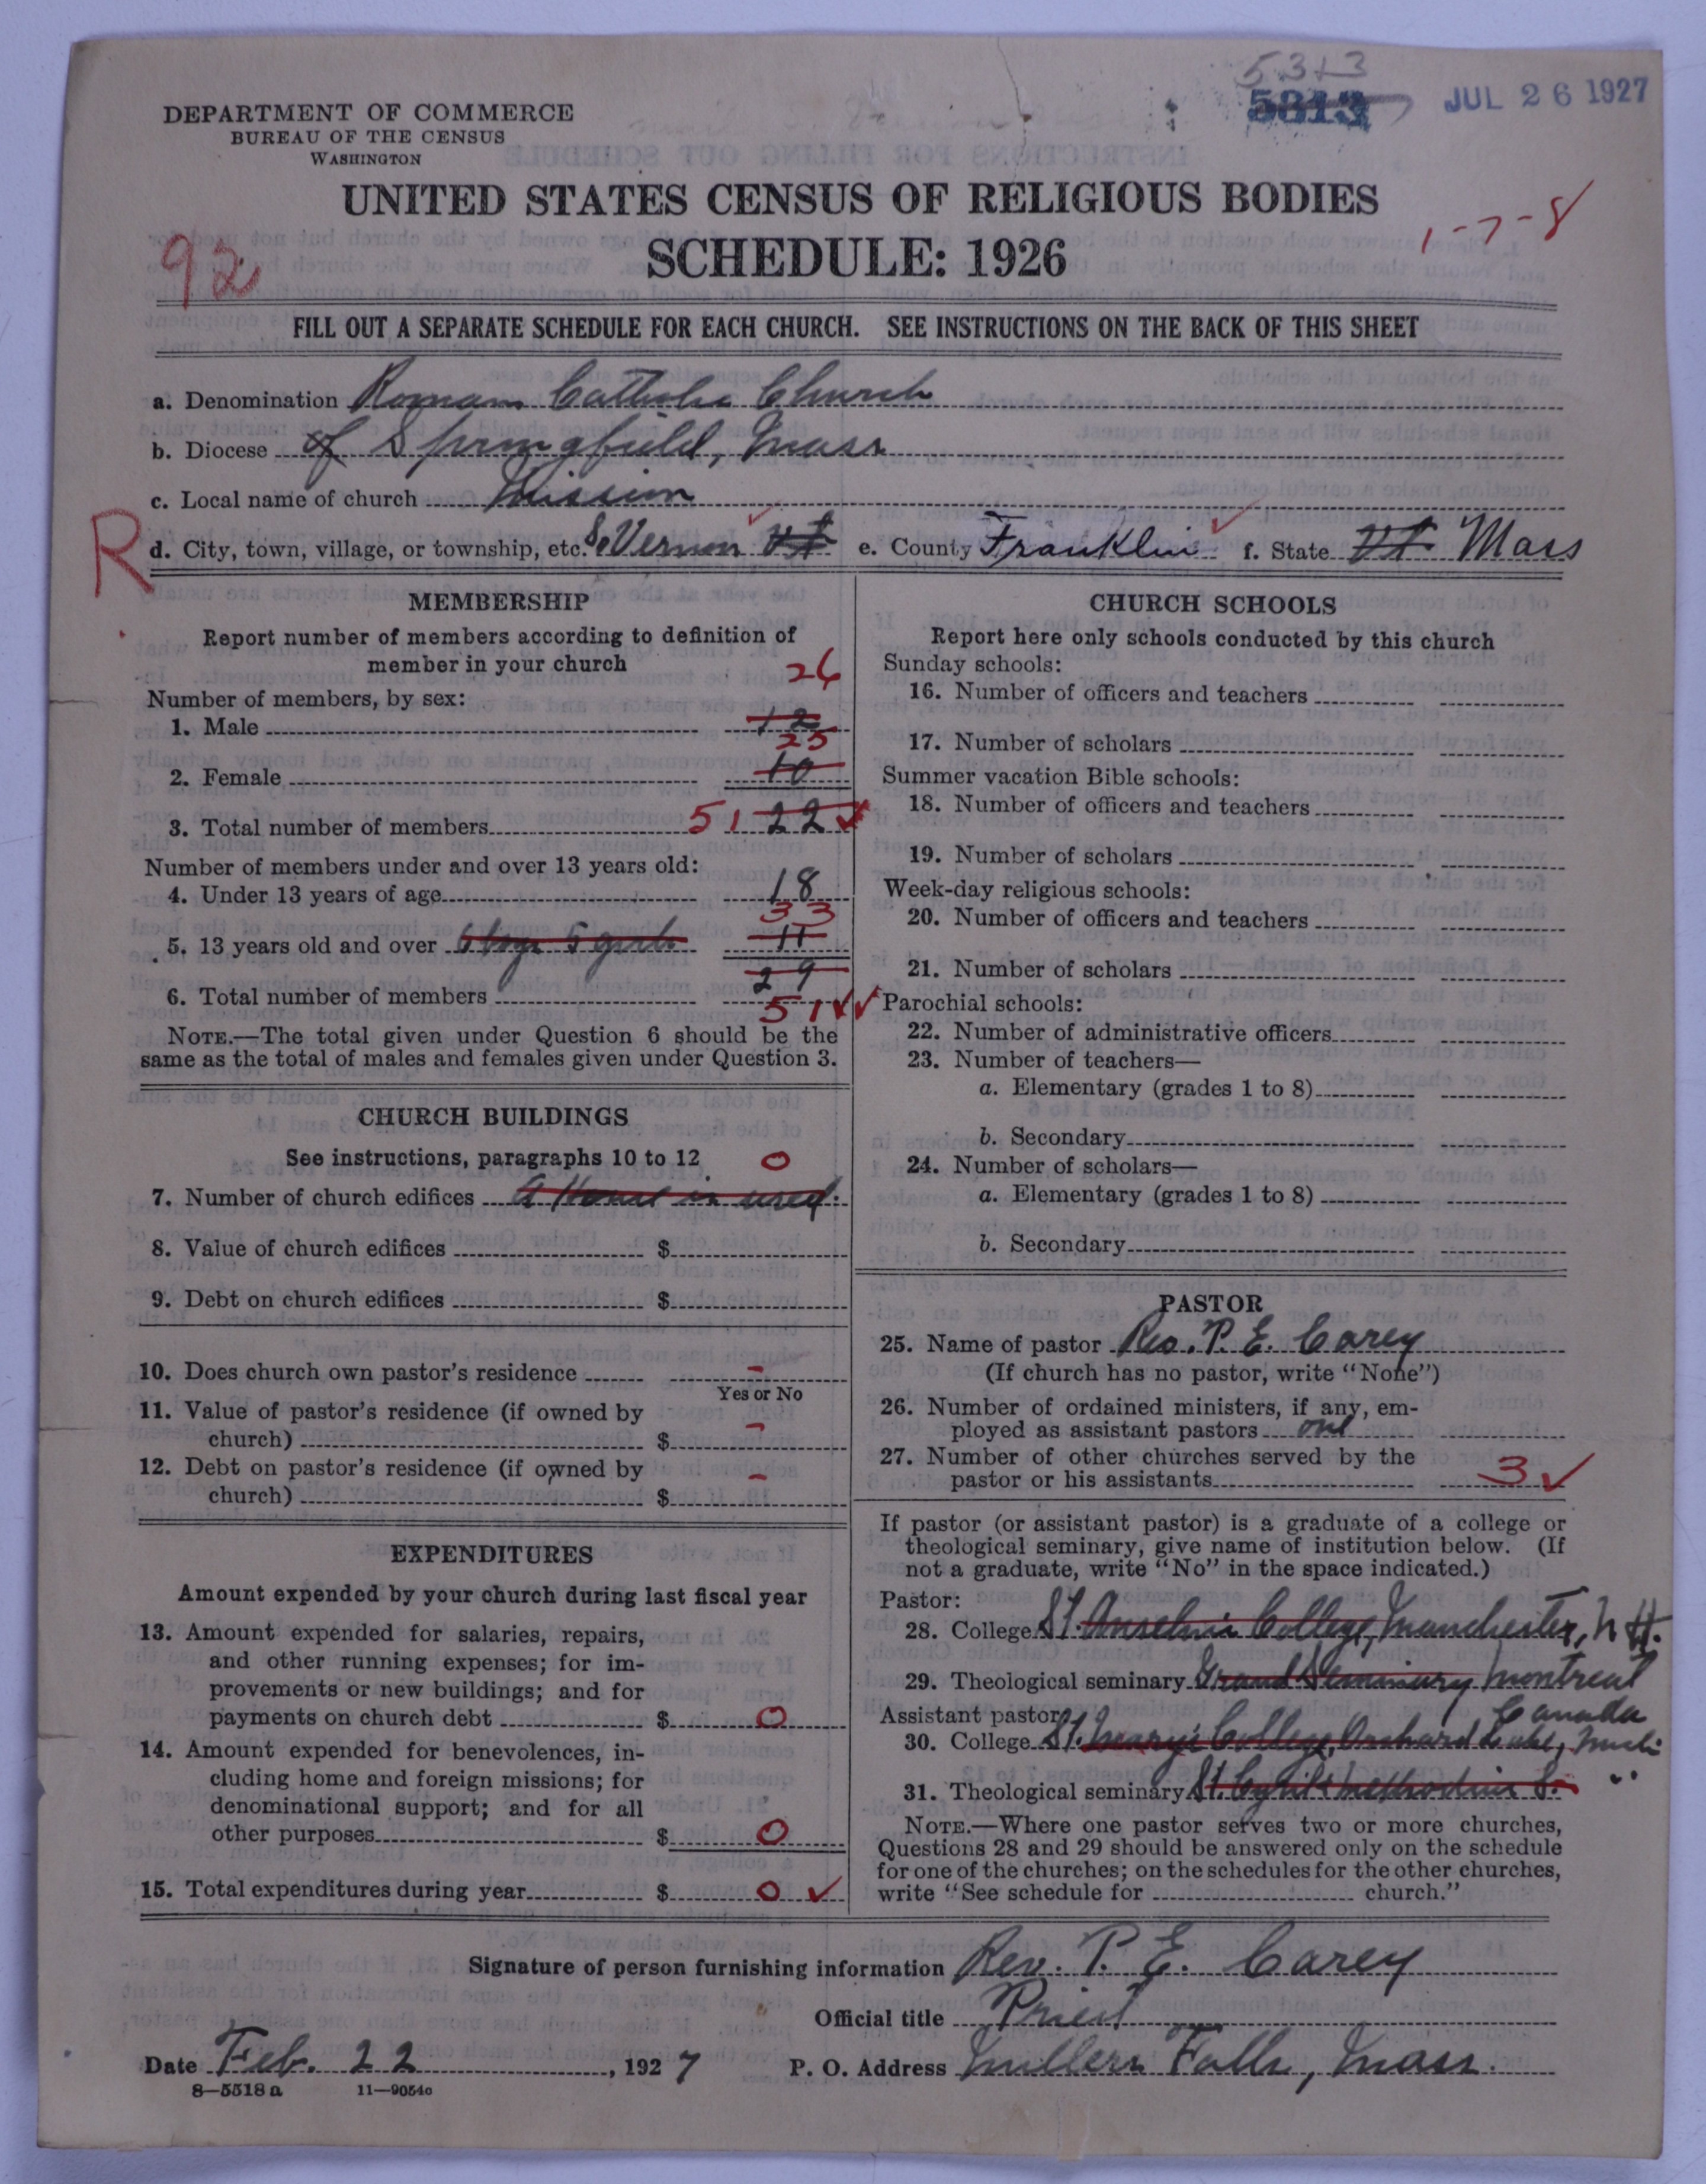 5313
5813
JUL 26 1927
DEPARTMENT OF COMMERCE
BUREAU OF THE CENSUS
WASHINGTON
UNITED STATES CENSUS OF RELIGIOUS BODIES
SCHEDULE: 1926
92
1-7-8
FILL OUT A SEPARATE SCHEDULE FOR EACH CHURCH. SEE INSTRUCTIONS ON THE BACK OF THIS SHEET
a. Denomination Roman Catholic Church
b. Diocese of Springfield, Mass
c. Local name of church Mission
R
d. City, town, village, or township, etc. So Vernon Vt e. County Franklin f. State Vt Mass
MEMBERSHIP
Report number of members according to definition of
member in your church
26
Number of members, by sex:
1. Male 12
25
2. Female 10
3. Total number of members 51 22
Number of members under and over 13 years old:
4. Under 13 years of age 18
33
5. 13 years old and over 6 boys 5 girls 11
29
6. Total number of members 51
NOTE.—The total given under Question 6 should be the
same as the total of males and females given under Question 3.
CHURCH BUILDINGS
See instructions, paragraphs 10 to 12 0
7. Number of church edifices A House is used.
8. Value of church edifices $
9. Debt on church edifices $
10. Does church own pastor's residence -
Yes or No
11. Value of pastor's residence (if owned by
church) $ -
12. Debt on pastor's residence (if owned by
church) $ -
EXPENDITURES
Amount expended by your church during last fiscal year
13. Amount expended for salaries, repairs,
and other running expenses; for im-
provements or new buildings; and for
payments on church debt $ 0
14. Amount expended for benevolences, in-
cluding home and foreign missions; for
denominational support; and for all
other purposes $ 0
15. Total expenditures during year $ 0 ✓
CHURCH SCHOOLS
Report here only schools conducted by this church
Sunday schools:
16. Number of officers and teachers
17. Number of scholars
Summer vacation Bible schools:
18. Number of officers and teachers
19. Number of scholars
Week-day religious schools:
20. Number of officers and teachers
21. Number of scholars
Parochial schools:
22. Number of administrative officers
23. Number of teachers—
a. Elementary (grades 1 to 8)
b. Secondary
24. Number of scholars—
a. Elementary (grades 1 to 8)
b. Secondary
PASTOR
25. Name of pastor Rev. P. E. Carey
(If church has no pastor, write "None")
26. Number of ordained ministers, if any, em-
ployed as assistant pastors one
27. Number of other churches served by the
pastor or his assistants 3 ✓
If pastor (or assistant pastor) is a graduate of a college or
theological seminary, give name of institution below. (If
not a graduate, write "No" in the space indicated.)
Pastor:
28. College St. Anselm's College, Manchester, N.H.
29. Theological seminary Grand Seminary Montreal
Assistant pastor: Canada
30. College St. Mary's College, Orchard Lake, Mich
31. Theological seminary St. Cyril & Methodius S. "
NOTE.—Where one pastor serves two or more churches,
Questions 28 and 29 should be answered only on the schedule
for one of the churches; on the schedules for the other churches,
write "See schedule for church."
Signature of person furnishing information Rev. P. E. Carey
Official title Priest
Date Feb. 22, 1927 P. O. Address Millers Falls, Mass.
8—5518 a 11—9054c